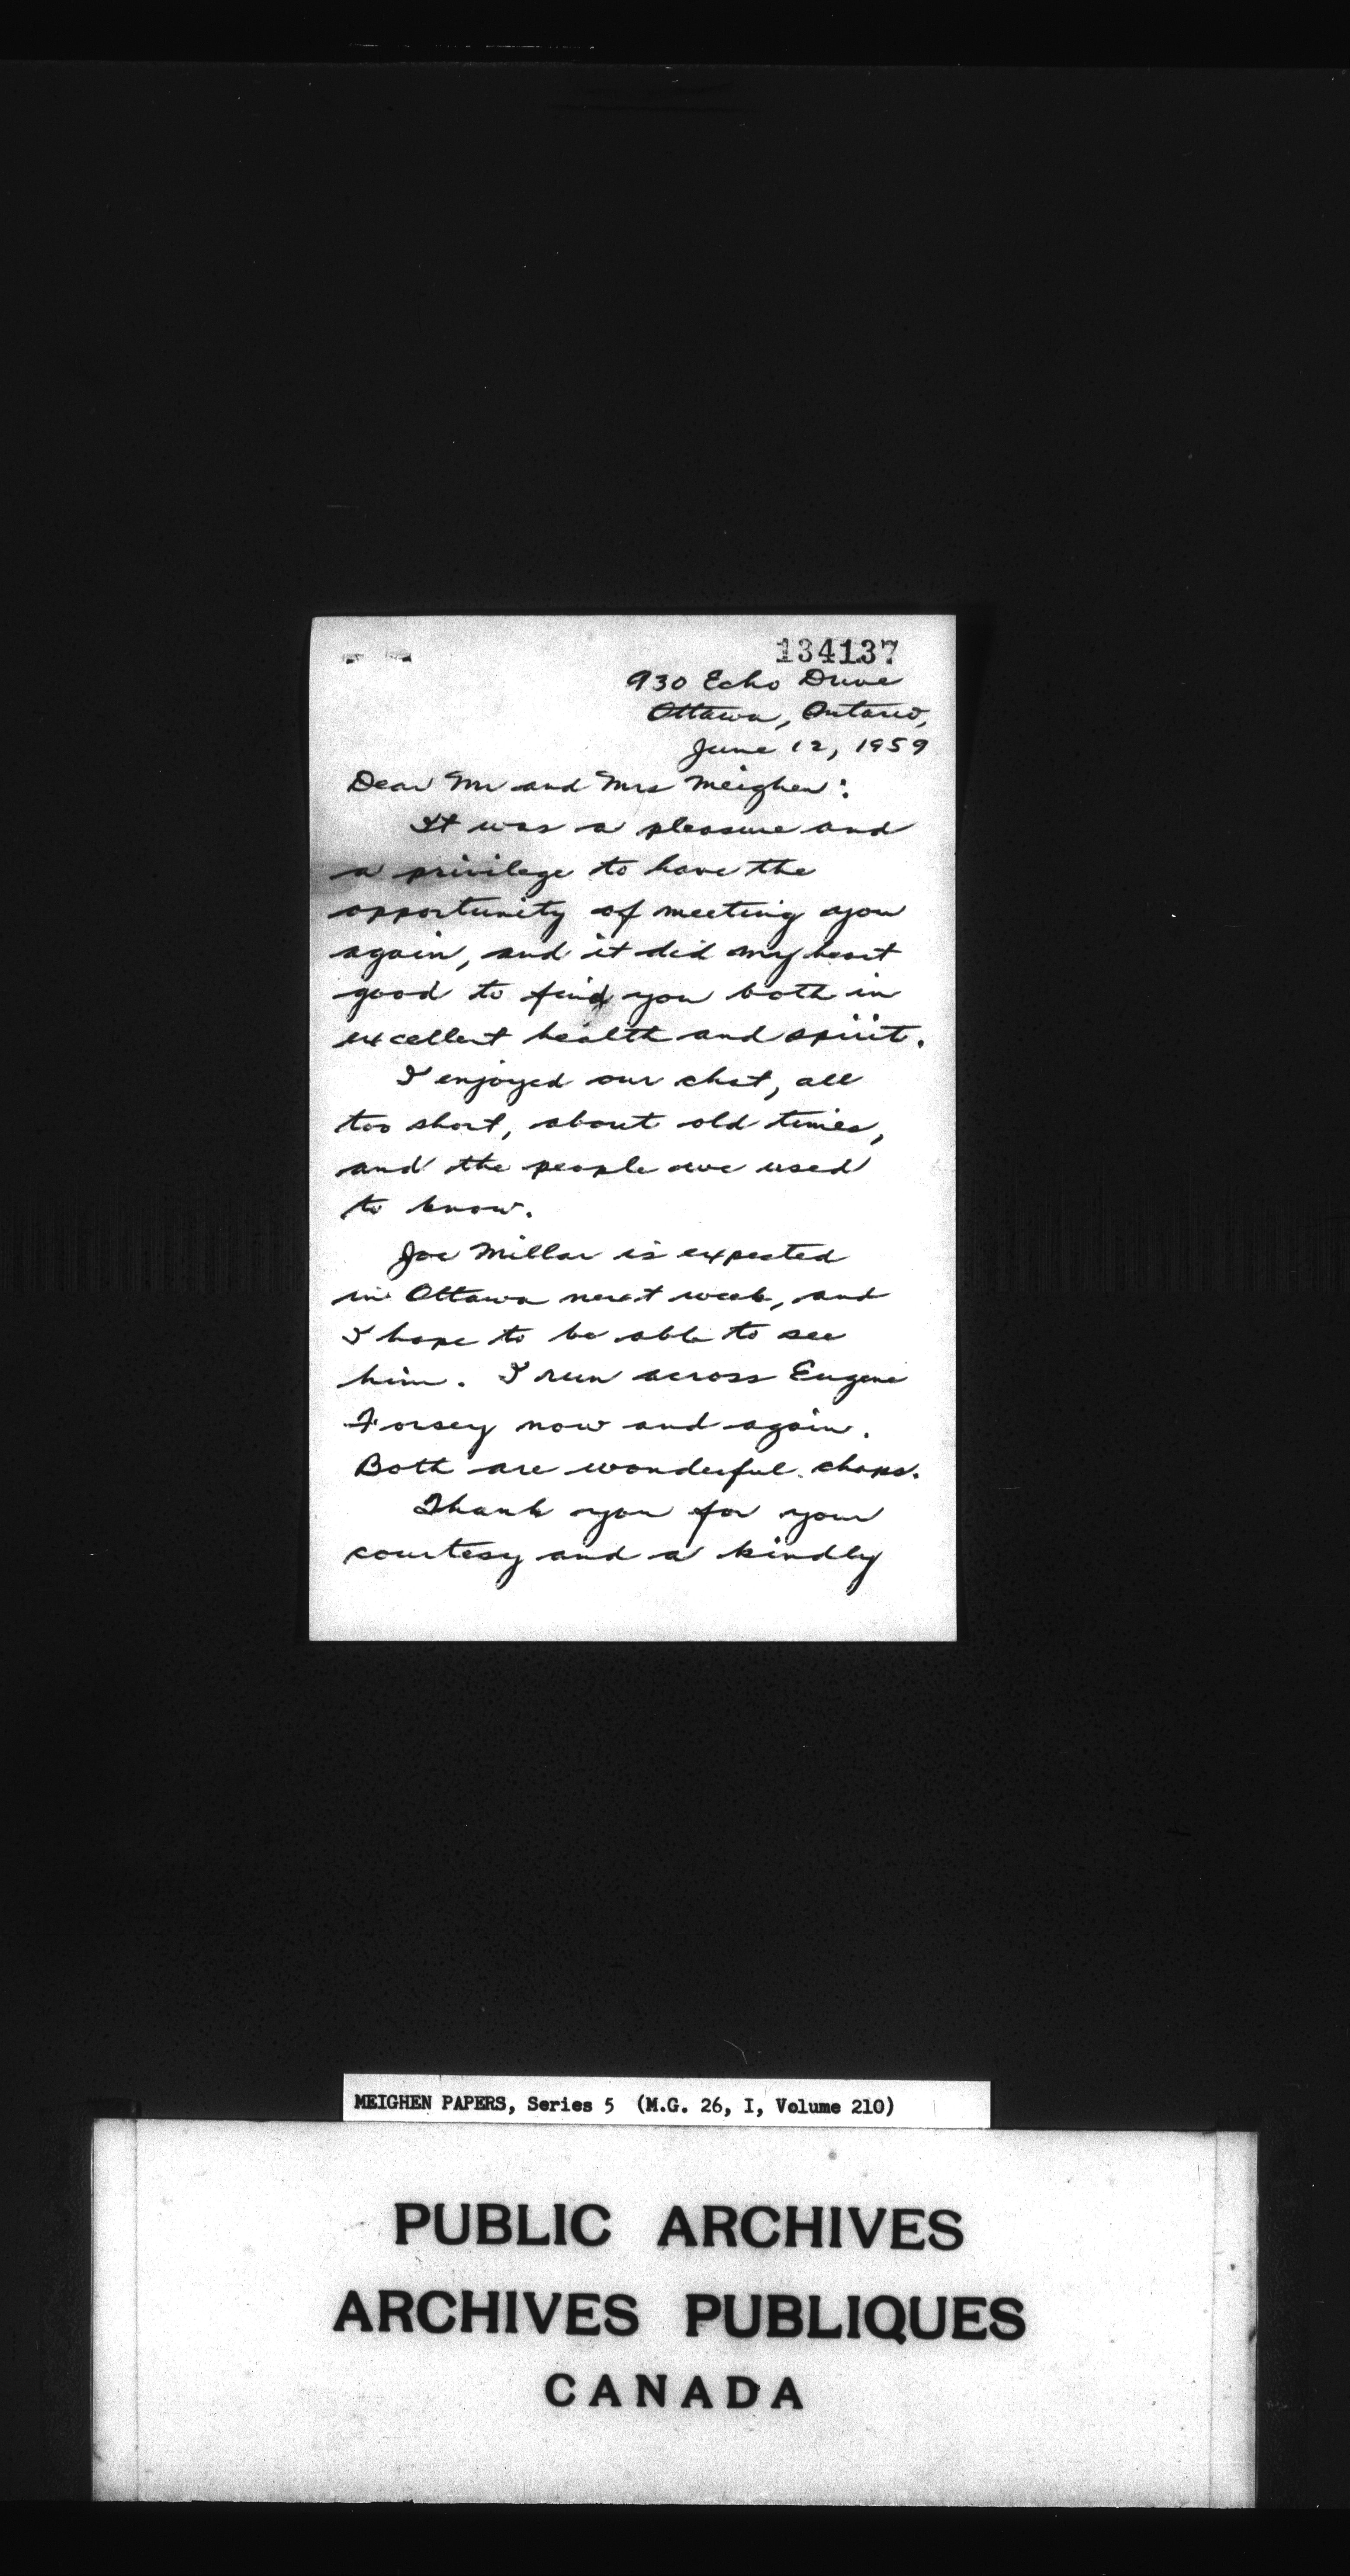 134137
930 Echo Drive
Ottawa, Ontario,
June 12, 1959
Dear Mr and Mrs Meighen:
It was a pleasure and
a privilege to have the
opportunity of meeting you
again, and it did my heart
good to find you both in
excellent health and spirit.
I enjoyed our chat, all
too short, about old times,
and the people we used
to know.
Joe Millar is expected
in Ottawa next week, and
I hope to be able to see
him. I run across Eugene
Forsey now and again.
Both are wonderful chaps.
Thank you for your
courtesy and a kindly
MEIGHEN PAPERS, Series 5 (M.G. 26, I, Volume 210)
PUBLIC ARCHIVES
ARCHIVES PUBLIQUES
CANADA